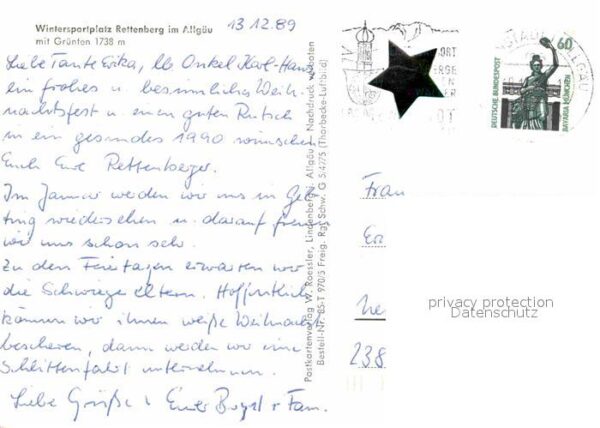 Wintersportplatz Rettenberg im Allgäu
mit Grünten 1738 m
13.12.89
Liebe Tante Erika, lb. Onkel Karl-Hans
ein frohes u. besinnliches Weih-
nachtsfest u. einen guten Rutsch
in ein gesundes 1990 wünschen
Euch Eure Rettenberger.
Im Januar werden wir uns in
ting wiedersehen u. darauf freuen
wir uns schon sehr.
Zu den Feiertagen erwarten wir
die Schwiegereltern. Hoffentlich
können wir ihnen weiße Weihnacht
bescheren, dann werden wir eine
Schlittenfahrt unternehmen.
Liebe Grüße v. Eurer + Fam.
Postkartenverlag W. Roessler, Lindenberg i. Allgäu · Nachdruck verboten
Bestell-Nr. BS-T 970/5 Freig. Rgt Schw. G 5/4775 (Thorbecke-Luftbild)
60
DEUTSCHE BUNDESPOST
BAVARIA MÜNCHEN
Frau
privacy protection
Datenschutz
238